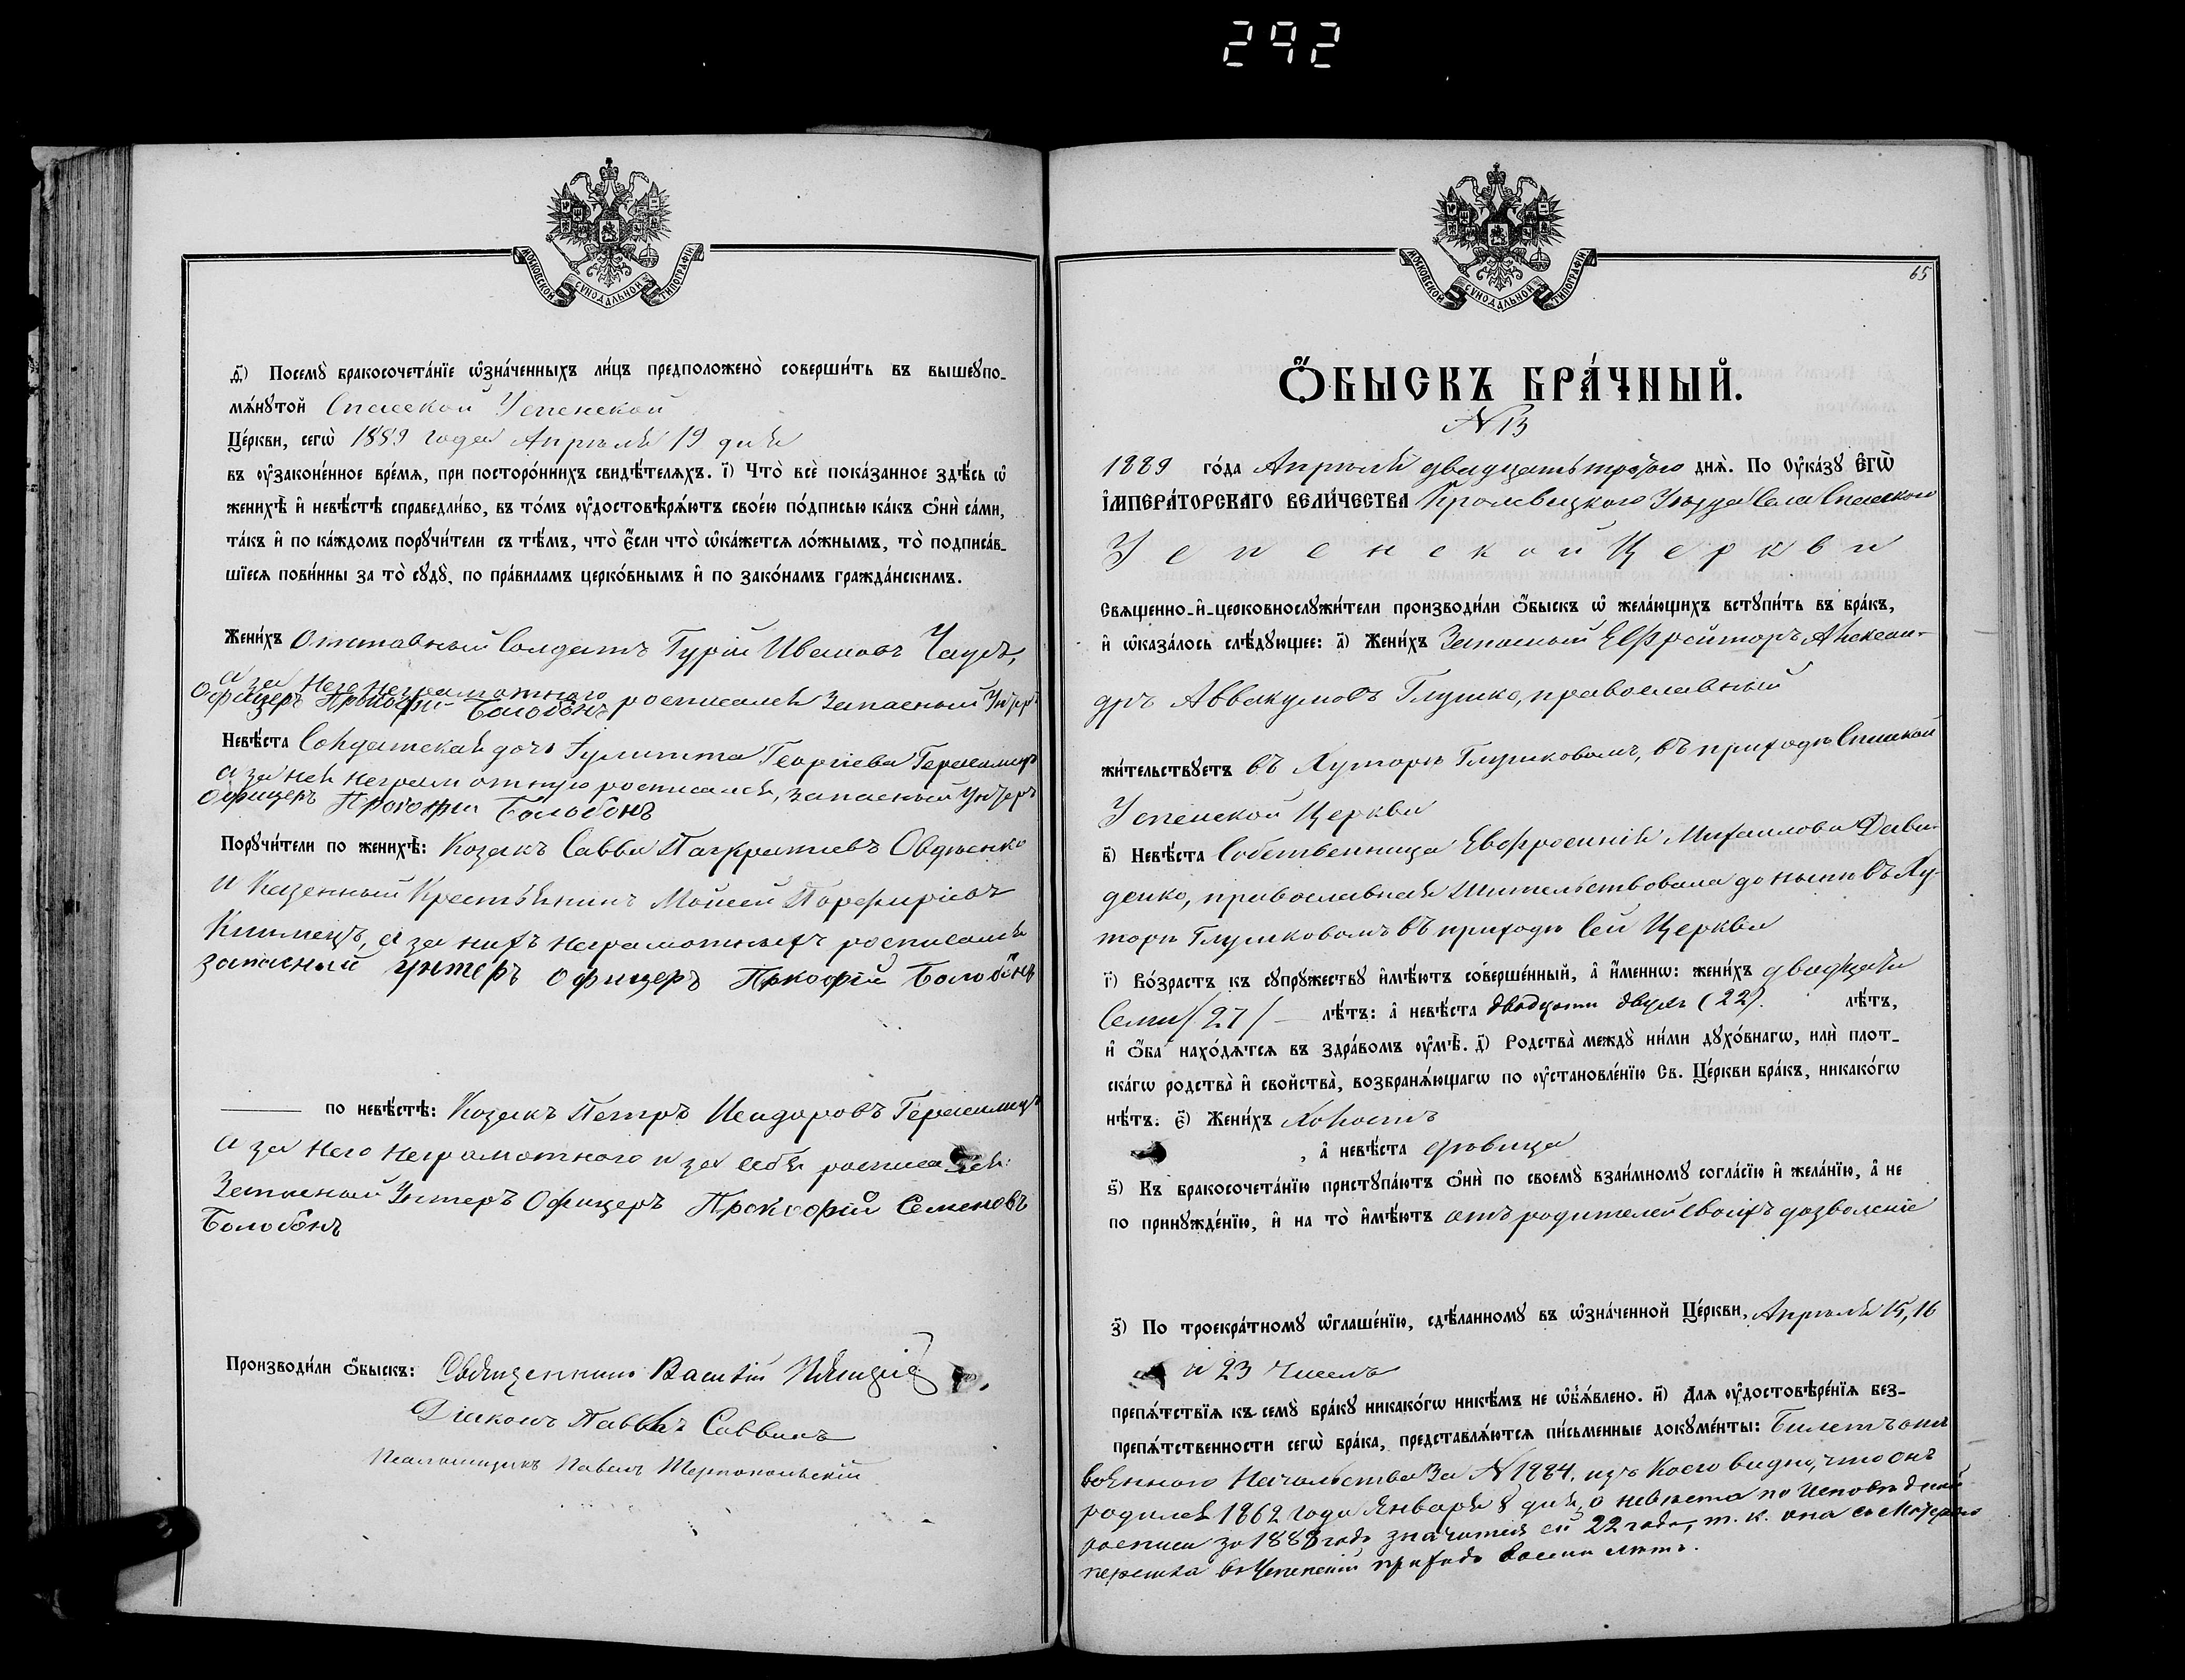 292
МОСКОВСКОЙ СѴНОДАЛЬНОЙ ТИПОГРАФІИ
д҃) Посемꙋ̀ бракосочета́нїе ѡ҆зна́ченныхъ ли́цъ предположено̀ соверши́ть въ вышеꙋпо-
мѧ́нꙋтой Спасской Успенской
Це́ркви, сегѡ̀ 1889 года Апрѣля 19 дня
въ ᲂу҆законе́нное вре́мѧ, при посторо́ннихъ свидѣ́телѧхъ. і҃) Что̀ всѐ пока́занное здѣ́сь ѡ҆
женихѣ̀ и҆ невѣ́стѣ справедли́во, въ то́мъ ᲂу҆достовѣрѧ́ютъ свое́ю по́дписью ка́къ ѻ҆нѝ са́ми,
та́къ и҆ по ка́ждомъ порꙋчи́тели съ тѣ́мъ, что̀ є҆́сли что̀ ѡ҆ка́жетсѧ ло́жнымъ, то̀ подписа́в-
шїесѧ пови́нны за то̀ сꙋдꙋ̀, по пра́виламъ церко́внымъ и҆ по зако́намъ гражда́нскимъ.
Жени́хъ Отставный Солдатъ Гурій Ивановъ Чаусъ,
а за него неграмотного
Офицеръ Прокофій Болобонъ росписался Запасный Унтеръ
Невѣ́ста Солдатская дочь Іулитта Георгіева Герасимецъ
а за ней неграмотную росписался, запасный Унтеръ
Офицеръ Прокофій Болобонъ
Порꙋчи́тели по женихѣ̀: Козакъ Савва Панкратиевъ Овдіенко
и Казенный Крестьянинъ Моисей Порфиріевъ
а за нихъ неграмотныхъ росписался
запасный унтеръ офицеръ Пркофій Болобонъ
по невѣ́стѣ: Козакъ Петръ Исидоровъ Герасимецъ
а за него неграмотного и за себя росписался
Запасный Унтеръ Офицеръ Прокофій Семеновъ
Болобонъ
Производи́ли ѻ҆́быскъ: Священникъ Василій
Діаконъ Павелъ Саввинъ
Псаломщикъ Павелъ
МОСКОВСКОЙ СѴНОДАЛЬНОЙ ТИПОГРАФІИ
65
Ѻ҆́БЫСКЪ БРА́ЧНЫЙ.
N 13
1889 го́да Апрѣля двадцать третого днѧ̀. По Оу҆ка́зꙋ Є҆гѡ̀
І҆МПЕРА́ТОРСКАГО ВЕЛИ́ЧЕСТВА Кролевецкого Уѣзда Села Спасского
Успенской Церкви
Свѧщенно-и҆-церковнослꙋжи́тели производи́ли ѻ҆́быскъ ѡ҆ жела́ющихъ встꙋпи́ть въ бра́къ,
и҆ ѡ҆каза́лось слѣ́дꙋющее: а҃) Жени́хъ Запасный Ефрейторъ Алексан-
дръ Аввакумовъ Глушко, православный
жи́тельствꙋетъ въ Хуторѣ Глушковомъ, въ приходѣ Спасской
Успенской Церкви
в҃) Невѣ́ста Собственница Евфросинія Михаилова Дави-
денко, православная жительствовала до нынѣ въ Ху-
торѣ Глушковомъ въ приходѣ Сей Церкви
г҃) Во́зрастъ къ сꙋпрꙋ́жествꙋ и҆мѣ́ютъ соверше́нный, а҆ и҆́менно: жени́хъ двадцати
Семи /27/ лѣ́тъ: а҆ невѣ́ста двадцати двухъ (22). лѣ́тъ,
и҆ ѻ҆́ба нахо́дѧтсѧ въ здра́вомъ ᲂу҆мѣ̀. д҃) Родства̀ междꙋ̀ ни́ми дꙋхо́внагѡ, илѝ плот-
ска́гѡ родства̀ и҆ свойства̀, возбранѧ́ющагѡ по ᲂу҆становле́нїю Св. Це́ркви бра́къ, никако́гѡ
нѣ́тъ. є҃) Жени́хъ Холостъ
, а҆ невѣ́ста дѣвица
ѕ҃) Къ бракосочета́нїю пристꙋпа́ютъ ѻ҆нѝ по своемꙋ̀ взаи́мномꙋ согла́сїю и҆ жела́нїю, а҆ не
по принꙋжде́нїю, и҆ на то̀ и҆мѣ́ютъ отъ родителей своихъ дозволеніе
з҃) По троекра́тномꙋ ѡ҆глаше́нїю, сдѣ́ланномꙋ въ ѡ҆зна́ченной Це́ркви, Апрѣля 15, 16
и 23 Числъ
препѧ́тствїѧ къ семꙋ̀ бра́кꙋ никако́гѡ никѣ́мъ не ѡ҆б̾ѧ́влено. и҃) Длѧ ᲂу҆достовѣре́нїѧ без-
препѧ́тственности сегѡ̀ бра́ка, представлѧ́ютсѧ пи́сьменные докꙋме́нты: Билетъ отъ
военного Начальства За N 1984. изъ коего видно, что онъ
родился 1862 года Января 8 дня, а невѣста по исповѣдной
росписи за 1888 годъ значится ей 22 года, т. к. она съ Матерью
перешла въ Успенскій приходъ восемь лѣтъ.